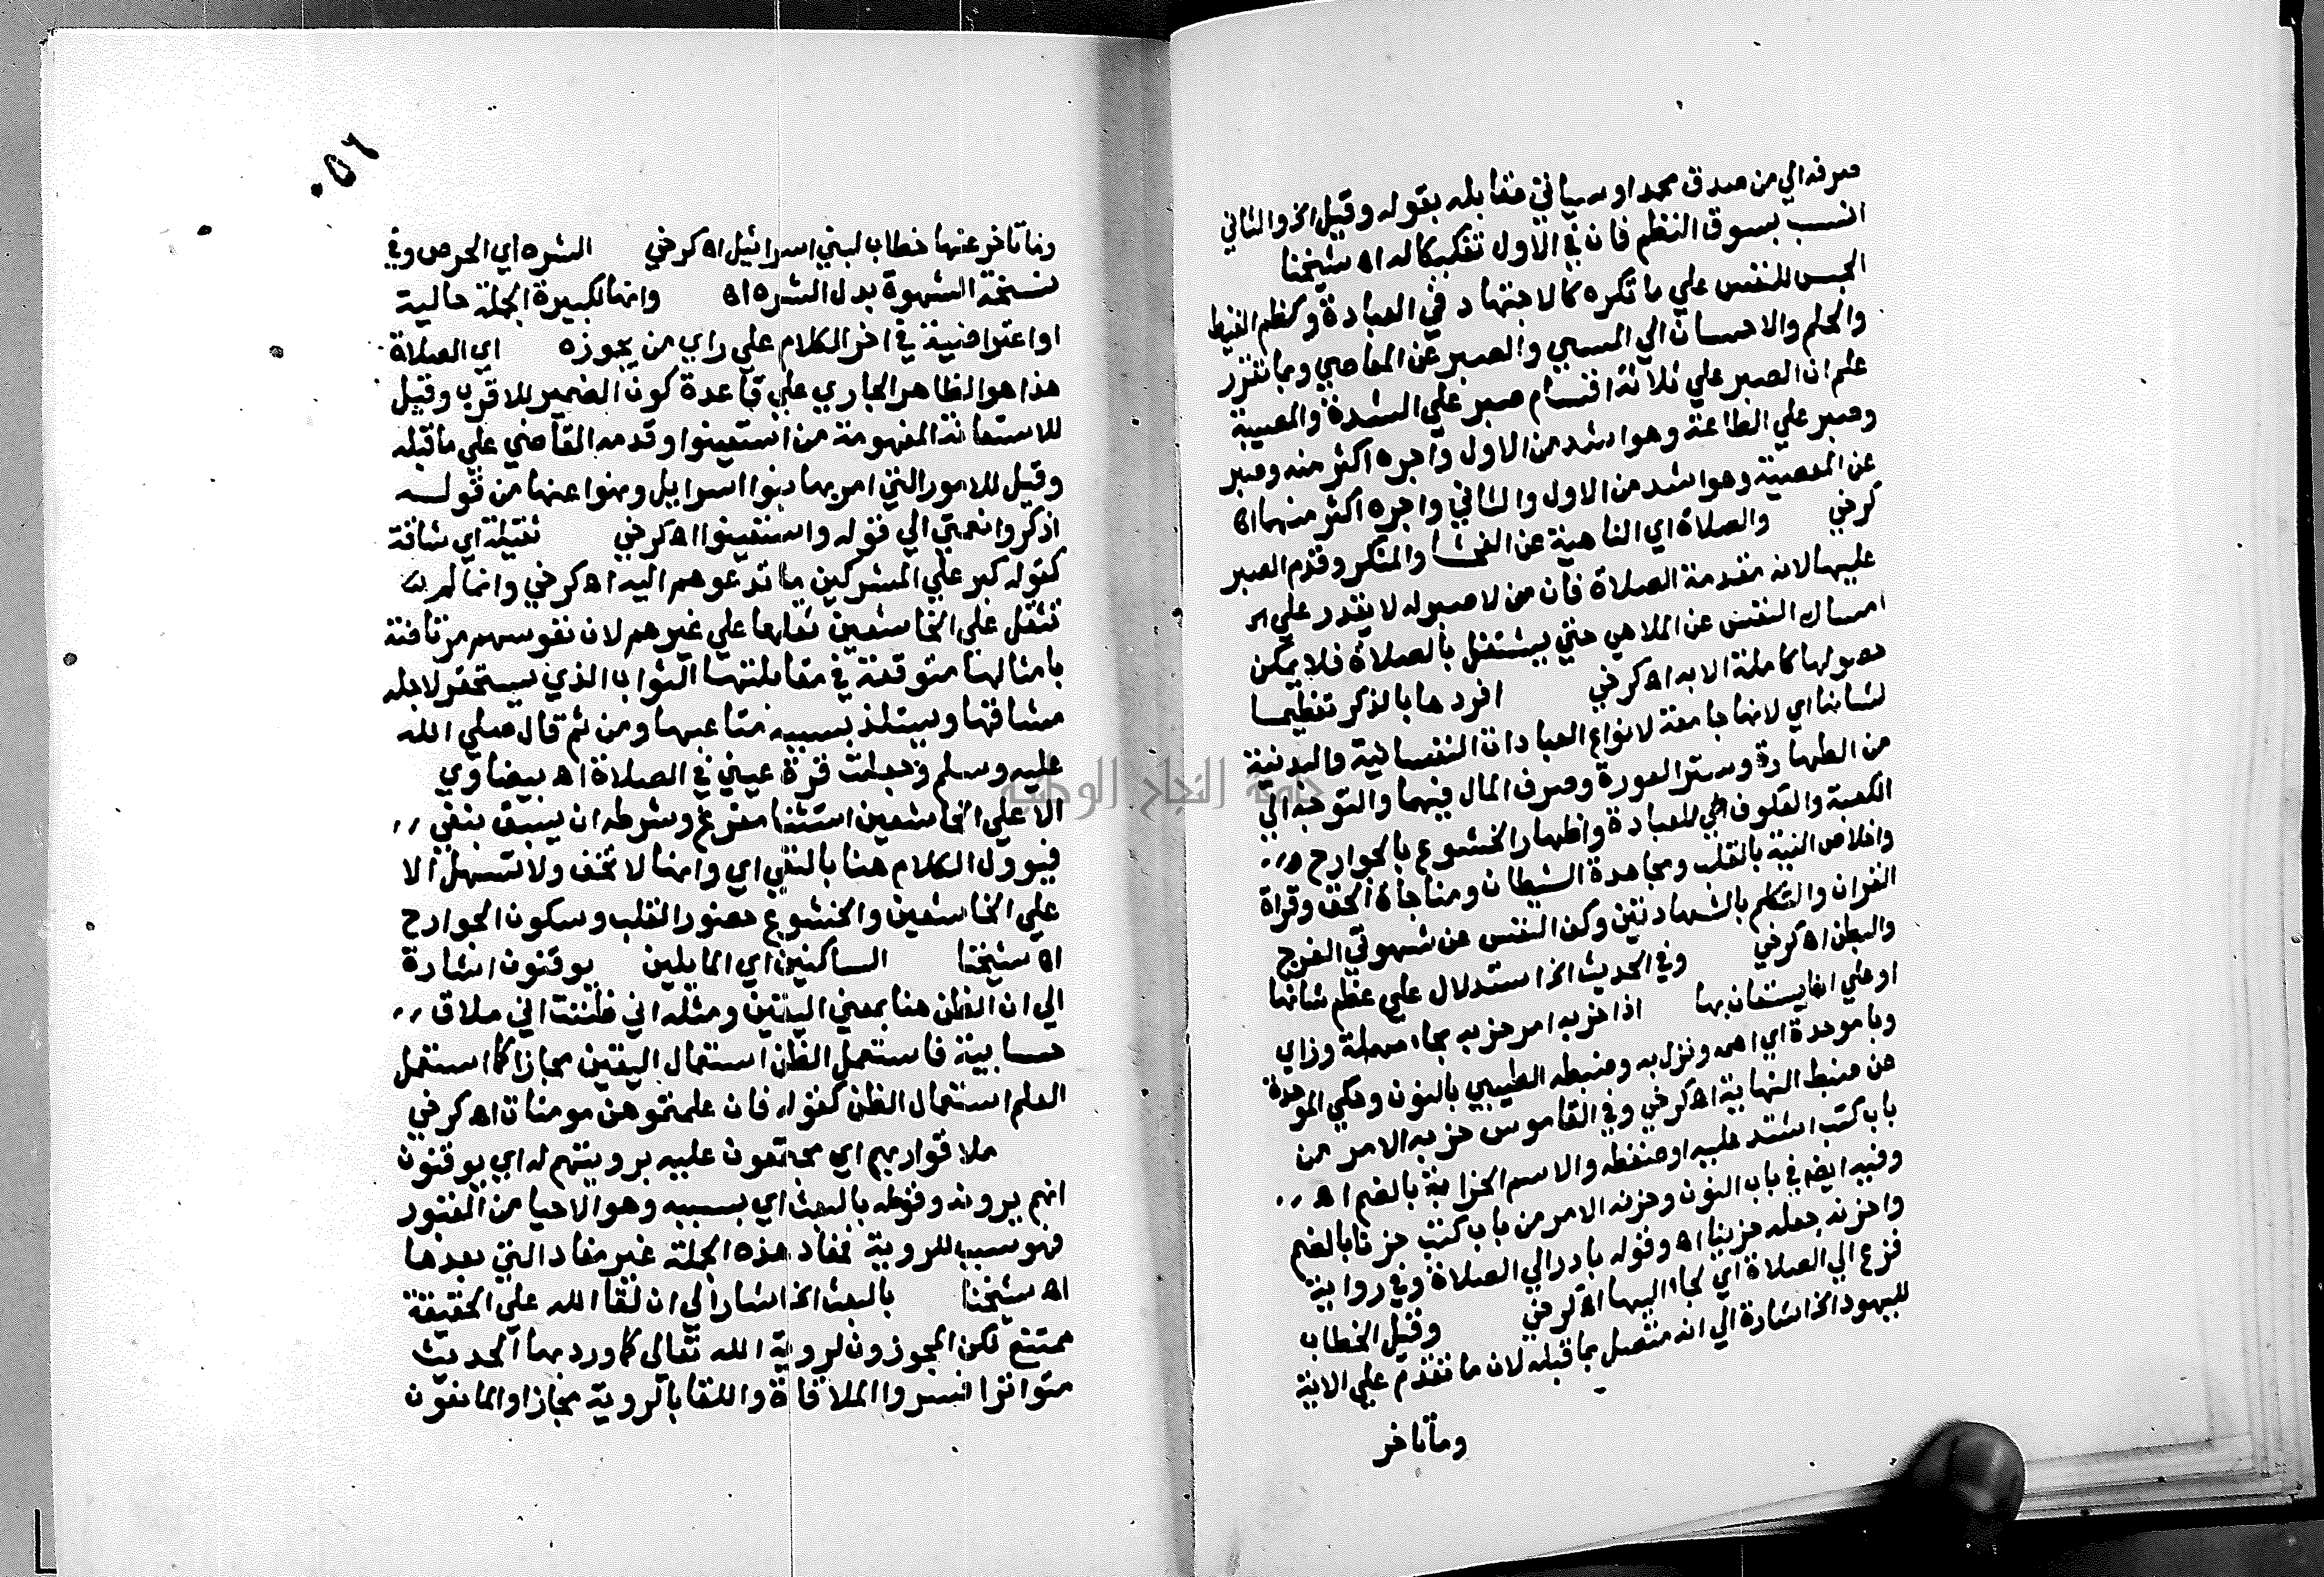 صرفه الي من صدق محمد او سياتي مقابله بقوله وقيل الخ والثاني
انسب بسوق النظم فان في الاول تفكيكا له اه شيخنا
الحبس للنفس علي ما تكره كالاجتهاد في العبادة وكظم الغيظ
والحلم والاحسان الي المسي والصبر عن المعاصي ومما تقرر
علم ان الصبر علي ثلاثة اقسام صبر علي الشدة والمصيبة
وصبر علي الطاعة وهو اشد من الاول واجره اكثر منه وصبر
عن المعصية وهو اشد من الاول والثاني واجره اكثر منهما اه
كرخي والصلاة اي الناهية عن الفحشا والمنكر وقدم الصبر
عليها لانه مقدمة الصلاة فان من لا صبر له لا يقدر علي
امساك النفس عن الملاهي حتي يشتغل بالصلاة فلا يمكن
حصولها كاملة الا به اه كرخي افردها بالذكر تعظيما
لشانها اي لانها جامعة لانواع العبادات النفسانية والبدنية
من الطهارة وستر العورة وصرف المال فيهما والتوجه الي
الكعبة والعكوف للعبادة واظهار الخشوع بالجوارح
واخلاص النية بالقلب ومجاهدة الشيطان ومناجاة الحق وقراة
القران والتكلم بالشهادتين وكف النفس عن شهوتي الفرج
والبطن اه كرخي وفي الحديث الخ استدلال علي عظم شانها
او علي انها يستعان بها اذا حزبه امر حزبه بحاء مهملة وزاي
وبا موحدة اي اهمه ونزل به وضبطه الطيبي بالنون وحكي الموحدة
عن ضبط النهاية اه كرخي وفي القاموس حزبه الامر من
باب كتب اشتد عليه او ضغطه والاسم الحزابة بالضم اه
وفيه ايضا في باب النون وحزنه الامر من باب كتب حزنا بالضم
واحزنه جعله حزينا اه وقوله بادر الي الصلاة وفي رواية
فزع الي الصلاة اي لجاء اليها اه كرخي وقيل الخطاب
لليهود الخ اشارة الي انه متصل بما قبله لان ما تقدم علي الاية
وما تاخر
٥٦
وما تاخر عنها خطاب لبني اسرائيل اه كرخي الشره اي الحرص وفي
نسخة الشهوة بدل الشره اه وانها لكبيرة الجملة حالية
او اعتراضية في اخر الكلام علي راي من يجوزه اي الصلاة
هذا هو الظاهر الجاري علي قاعدة كون الضمير للاقرب وقيل
للاستعانة المفهومة من استعينوا وقدمه القاضي علي ما قبله
وقيل للامور التي امر بها بنوا اسرايل ونهوا عنها من قوله
اذكروا نعمتي الي قوله واستعينوا اه كرخي ثقيلة اي شاقة
كقوله كبر علي المشركين ما تدعوهم اليه اه كرخي وانما لم
تثقل علي الخاشعين ثقلها علي غيرهم لان نفوسهم مرتاضة
بامثالها متوقعة في مقابلتها الثواب الذي يستحقر لاجله
مشاقها ويستلذ بسببه متاعبها ومن ثم قال صلي الله
عليه وسلم وجعلت قرة عيني في الصلاة اه بيضاوي
الا علي الخاشعين استثنا مفرغ وشرطه ان يسبق بنفي
فيوول الكلام هنا بالنفي اي وانها لا تخف ولا تسهل الا
علي الخاشعين والخشوع حضور القلب وسكون الجوارح
اه شيخنا الساكنين اي المايلين يوقنون اشارة
الي ان الظن هنا بمعني اليقين ومثله اني ظننت اني ملاق
حسابية فاستعمل الظن استعمال اليقين مجازا كما استعمل
العلم استعمال الظن كقوله فان علمتموهن مومنات اه كرخي
ملاقوا ربهم اي مجتمعون عليه برويتهم له اي يوقنون
انهم يرونه وقوله بالبعث اي بسببه وهو الاحيا من القبور
فهو سبب للروية فمفاد هذه الجملة غير مفاد التي بعدها
اه شيخنا بالبعث الخ اشار الي ان لقا الله علي الحقيقة
ممتنع لكن المجوزون لروية الله تعالي كما ورد بها الحديث
متواترا فسروا الملاقاة واللقا بالروية مجازا والمانعون
جامعة النجاح الوطنية